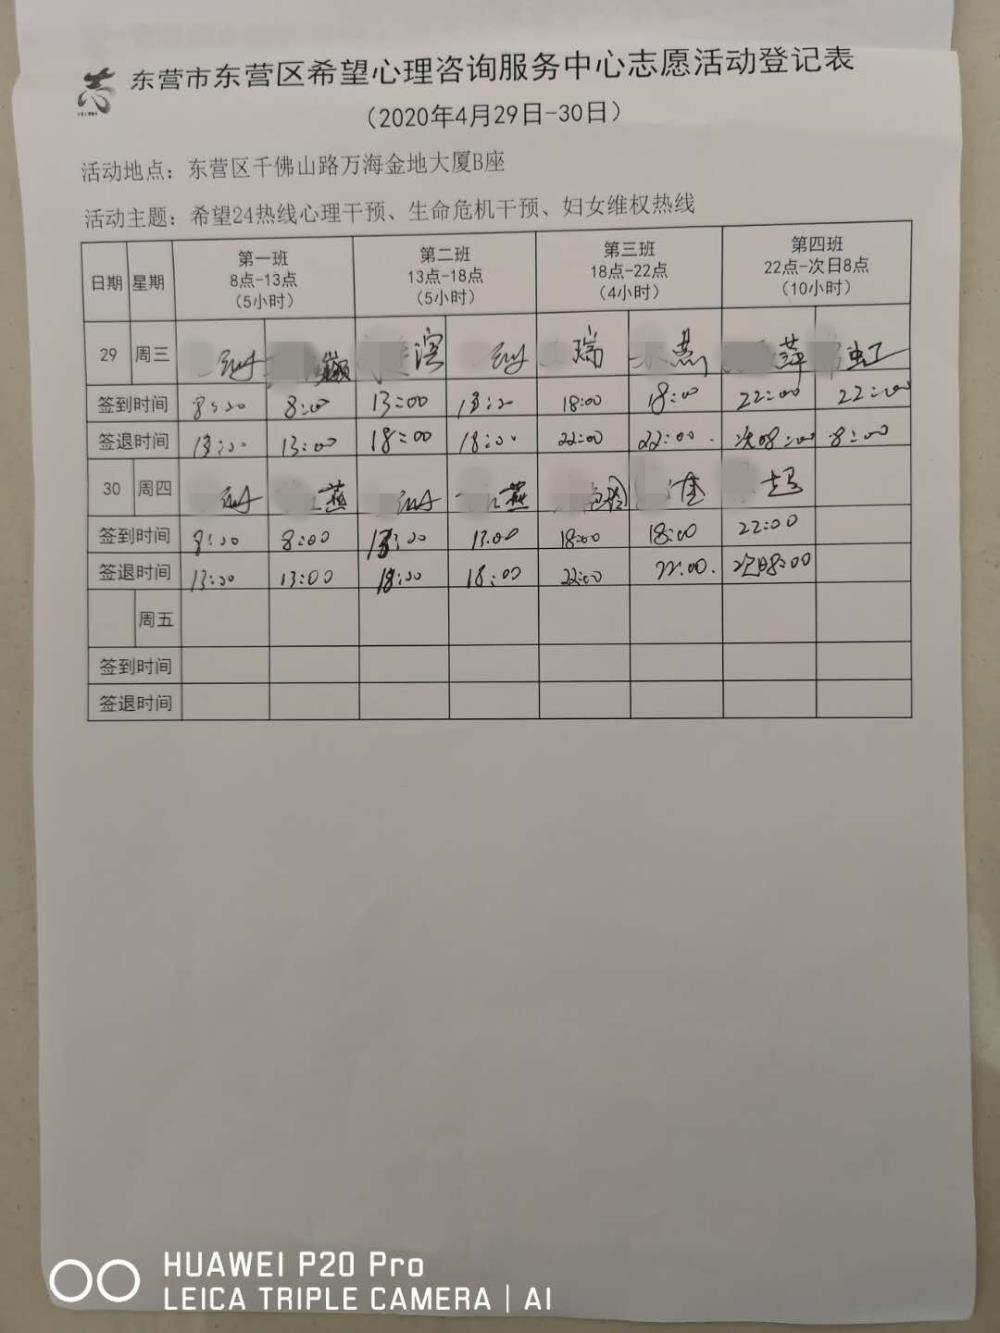 东营市东营区希望心理咨询服务中心志愿活动登记表
（2020年4月29日-30日）
活动地点：东营区千佛山路万海金地大厦B座
活动主题：希望24热线心理干预、生命危机干预、妇女维权热线
日期 星期 第一班 8点-13点 （5小时） 第二班 13点-18点 （5小时） 第三班 18点-22点 （4小时） 第四班 22点-次日8点 （10小时）
29 周三 滨 瑞 燕 萍 虹
签到时间 8:00 13:00 18:00 18:00 22:00 22:00
签退时间 13:00 18:00 18:00 22:00 22:00. 次日8:00 8:00
30 周四 燕 燕 起
签到时间 8:00 13:00 18:00 18:00 22:00
签退时间 13:00 13:00 18:00 18:00 22:00 22:00. 次日8:00
周五
签到时间
签退时间
HUAWEI P20 Pro
LEICA TRIPLE CAMERA | AI